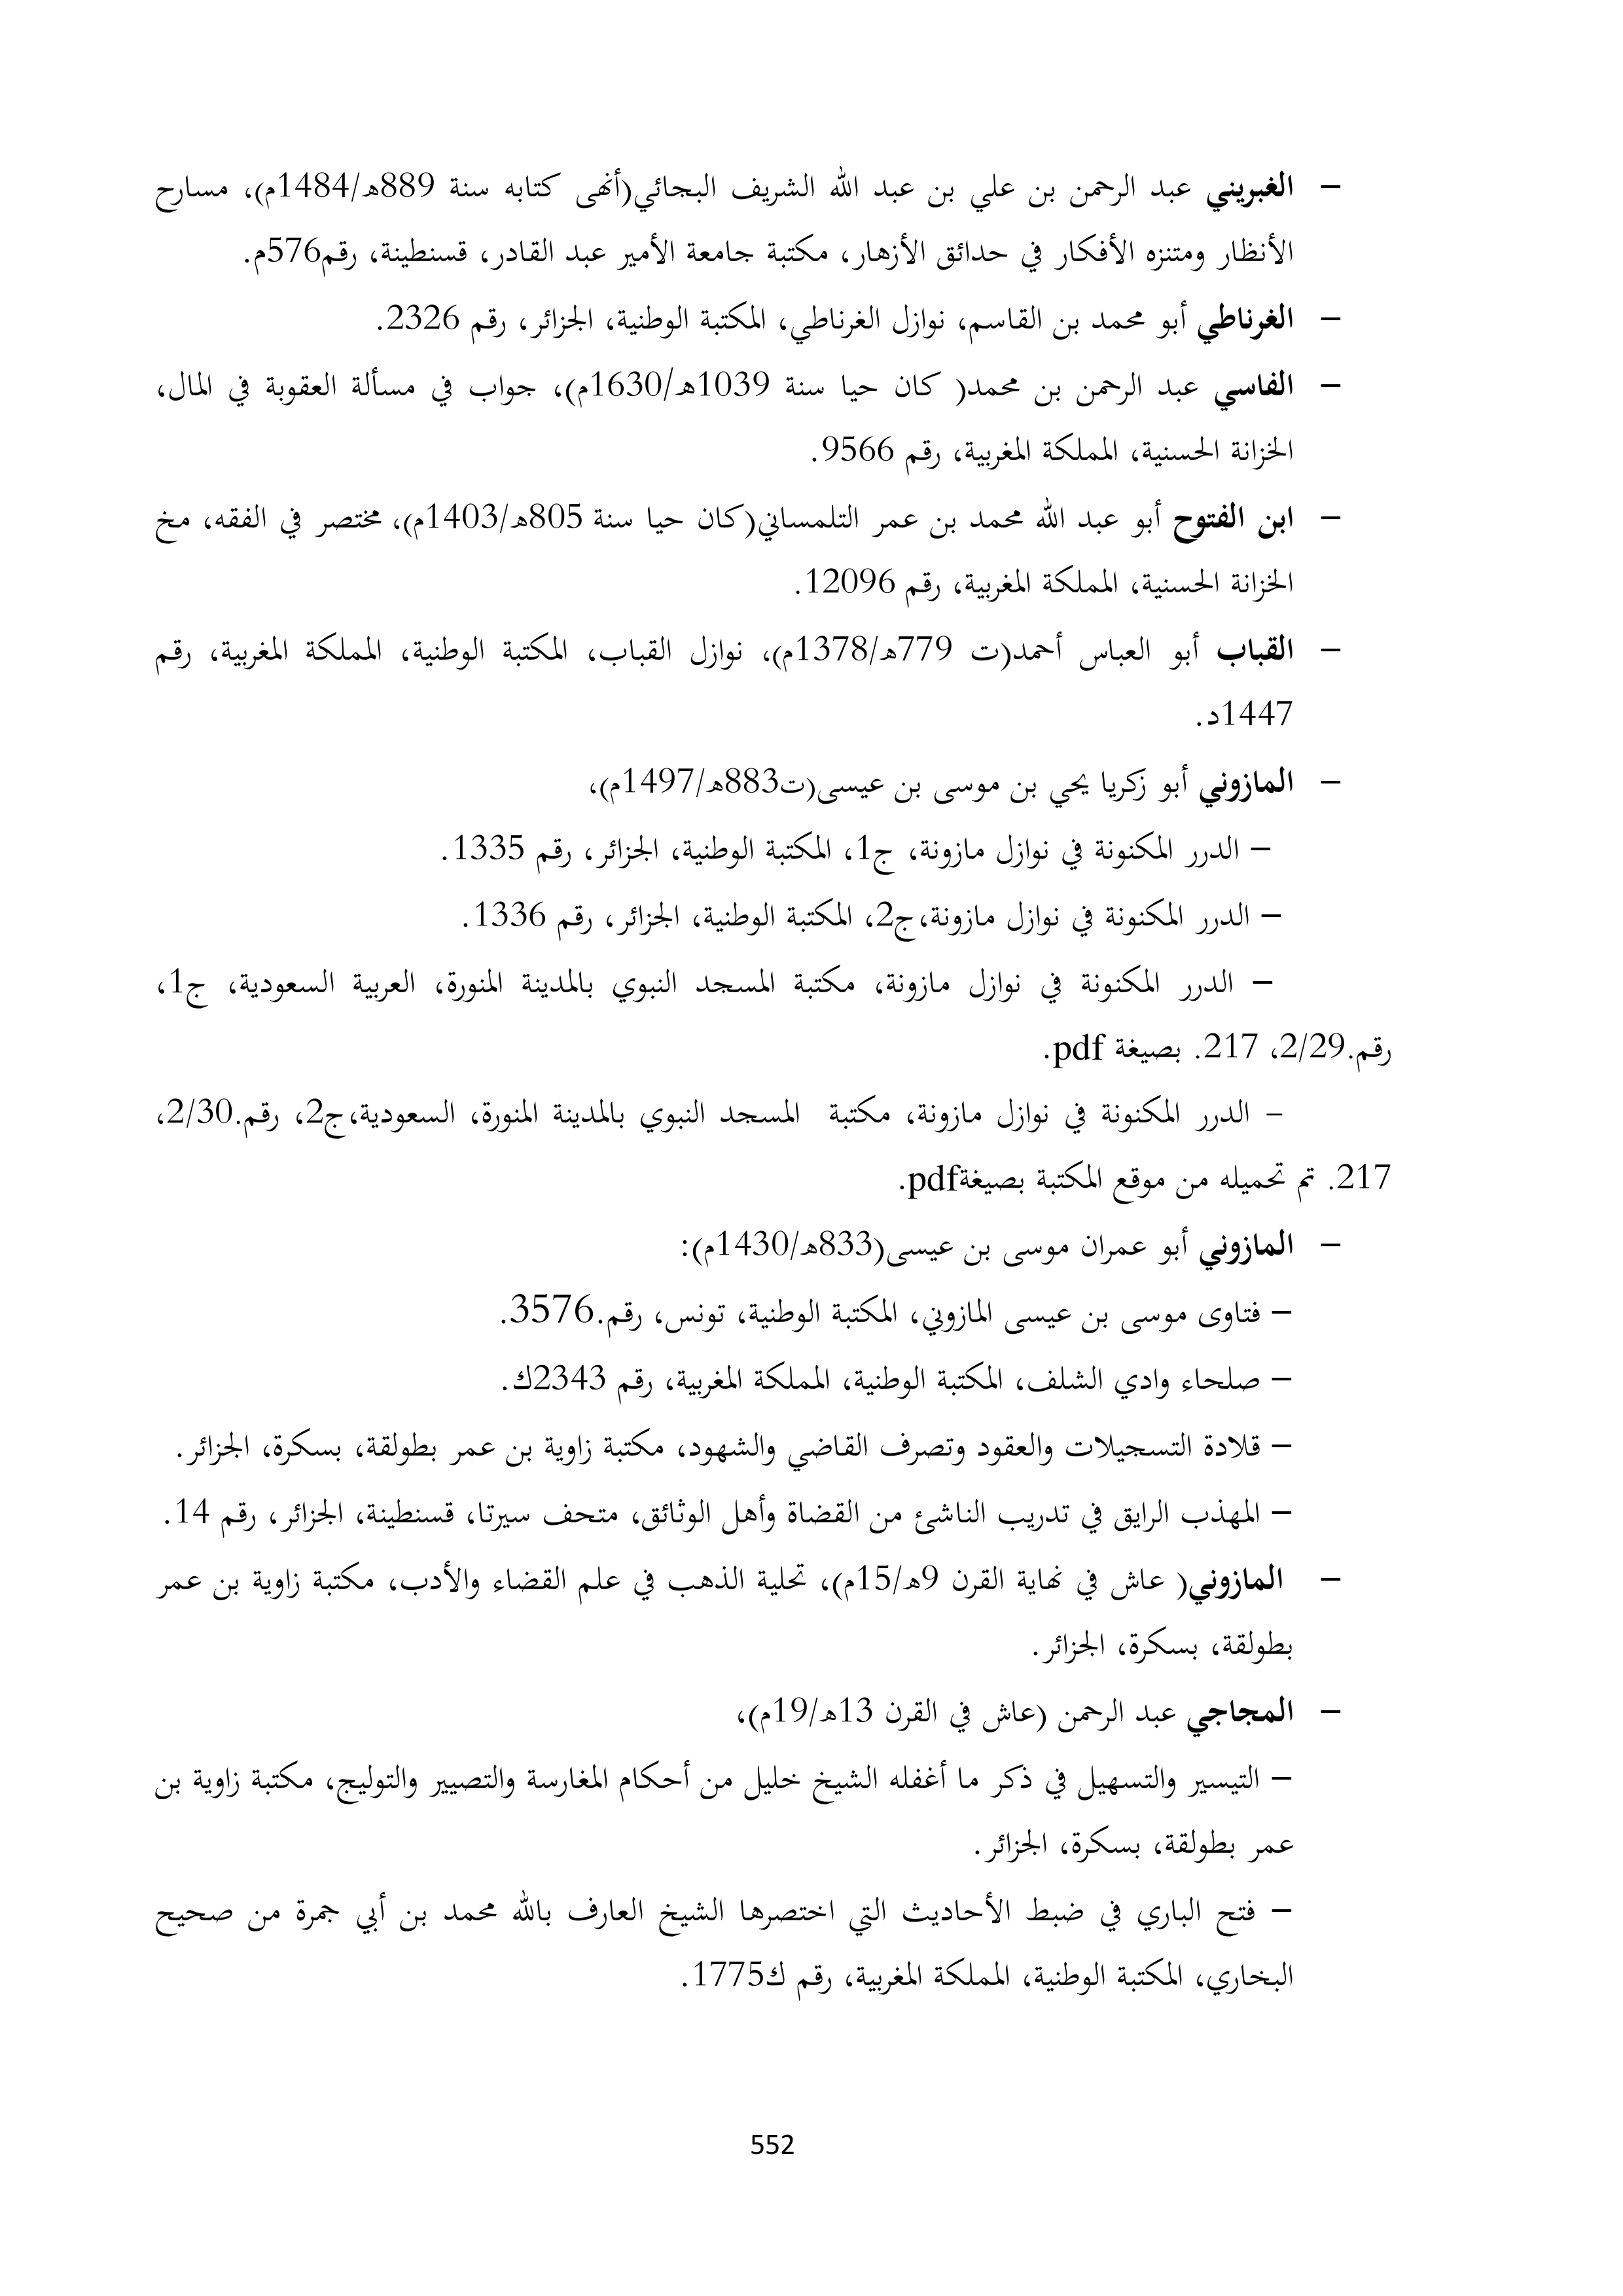 – الغبريني عبد الرحمن بن علي بن عبد الله الشريف البجائي(أنهى كتابه سنة 889ه/1484م)، مسارح
الأنظار ومتنزه الأفكار في حدائق الأزهار، مكتبة جامعة الأمير عبد القادر، قسنطينة، رقم576م.
– الغرناطي أبو محمد بن القاسم، نوازل الغرناطي، المكتبة الوطنية، الجزائر، رقم 2326.
– الفاسي عبد الرحمن بن محمد( كان حيا سنة 1039ه/1630م)، جواب في مسألة العقوبة في المال،
الخزانة الحسنية، المملكة المغربية، رقم 9566.
– ابن الفتوح أبو عبد الله محمد بن عمر التلمساني(كان حيا سنة 805ه/1403م)، مختصر في الفقه، مخ
الخزانة الحسنية، المملكة المغربية، رقم 12096.
– القباب أبو العباس أحمد(ت 779ه/1378م)، نوازل القباب، المكتبة الوطنية، المملكة المغربية، رقم
1447د.
– المازوني أبو زكريا يحي بن موسى بن عيسى(ت883ه/1497م)،
– الدرر المكنونة في نوازل مازونة، ج1، المكتبة الوطنية، الجزائر، رقم 1335.
– الدرر المكنونة في نوازل مازونة،ج2، المكتبة الوطنية، الجزائر، رقم 1336.
– الدرر المكنونة في نوازل مازونة، مكتبة المسجد النبوي بالمدينة المنورة، العربية السعودية، ج1،
رقم.2/29، 217. بصيغة pdf.
– الدرر المكنونة في نوازل مازونة، مكتبة المسجد النبوي بالمدينة المنورة، السعودية،ج2، رقم.2/30،
217. تم تحميله من موقع المكتبة بصيغةpdf.
– المازوني أبو عمران موسى بن عيسى(833ه/1430م):
– فتاوى موسى بن عيسى المازوني، المكتبة الوطنية، تونس، رقم.3576.
– صلحاء وادي الشلف، المكتبة الوطنية، المملكة المغربية، رقم 2343ك.
– قلادة التسجيلات والعقود وتصرف القاضي والشهود، مكتبة زاوية بن عمر بطولقة، بسكرة، الجزائر.
– المهذب الرايق في تدريب الناشئ من القضاة وأهل الوثائق، متحف سيرتا، قسنطينة، الجزائر، رقم 14.
– المازوني( عاش في نهاية القرن 9ه/15م)، تحلية الذهب في علم القضاء والأدب، مكتبة زاوية بن عمر
بطولقة، بسكرة، الجزائر.
– المجاجي عبد الرحمن (عاش في القرن 13ه/19م)،
– التيسير والتسهيل في ذكر ما أغفله الشيخ خليل من أحكام المغارسة والتصيير والتوليج، مكتبة زاوية بن
عمر بطولقة، بسكرة، الجزائر.
– فتح الباري في ضبط الأحاديث التي اختصرها الشيخ العارف بالله محمد بن أبي جمرة من صحيح
البخاري، المكتبة الوطنية، المملكة المغربية، رقم ك1775.
552